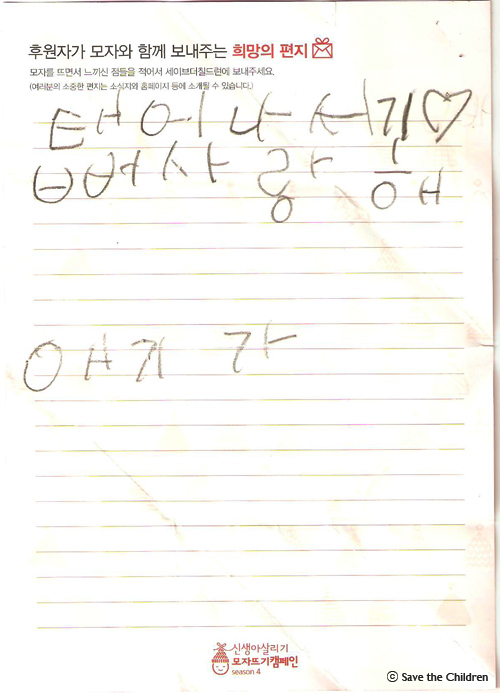 후원자가 모자와 함께 보내주는 희망의 편지
모자를 뜨면서 느끼신 점들을 적어서 세이브더칠드런에 보내주세요.
(여러분의 소중한 편지는 소식지와 홈페이지 등에 소개될 수 있습니다.)
태어나서기♡
뻐사랑해
애기가
신생아살리기
모자뜨기캠페인
season 4
ⓒ Save the Children